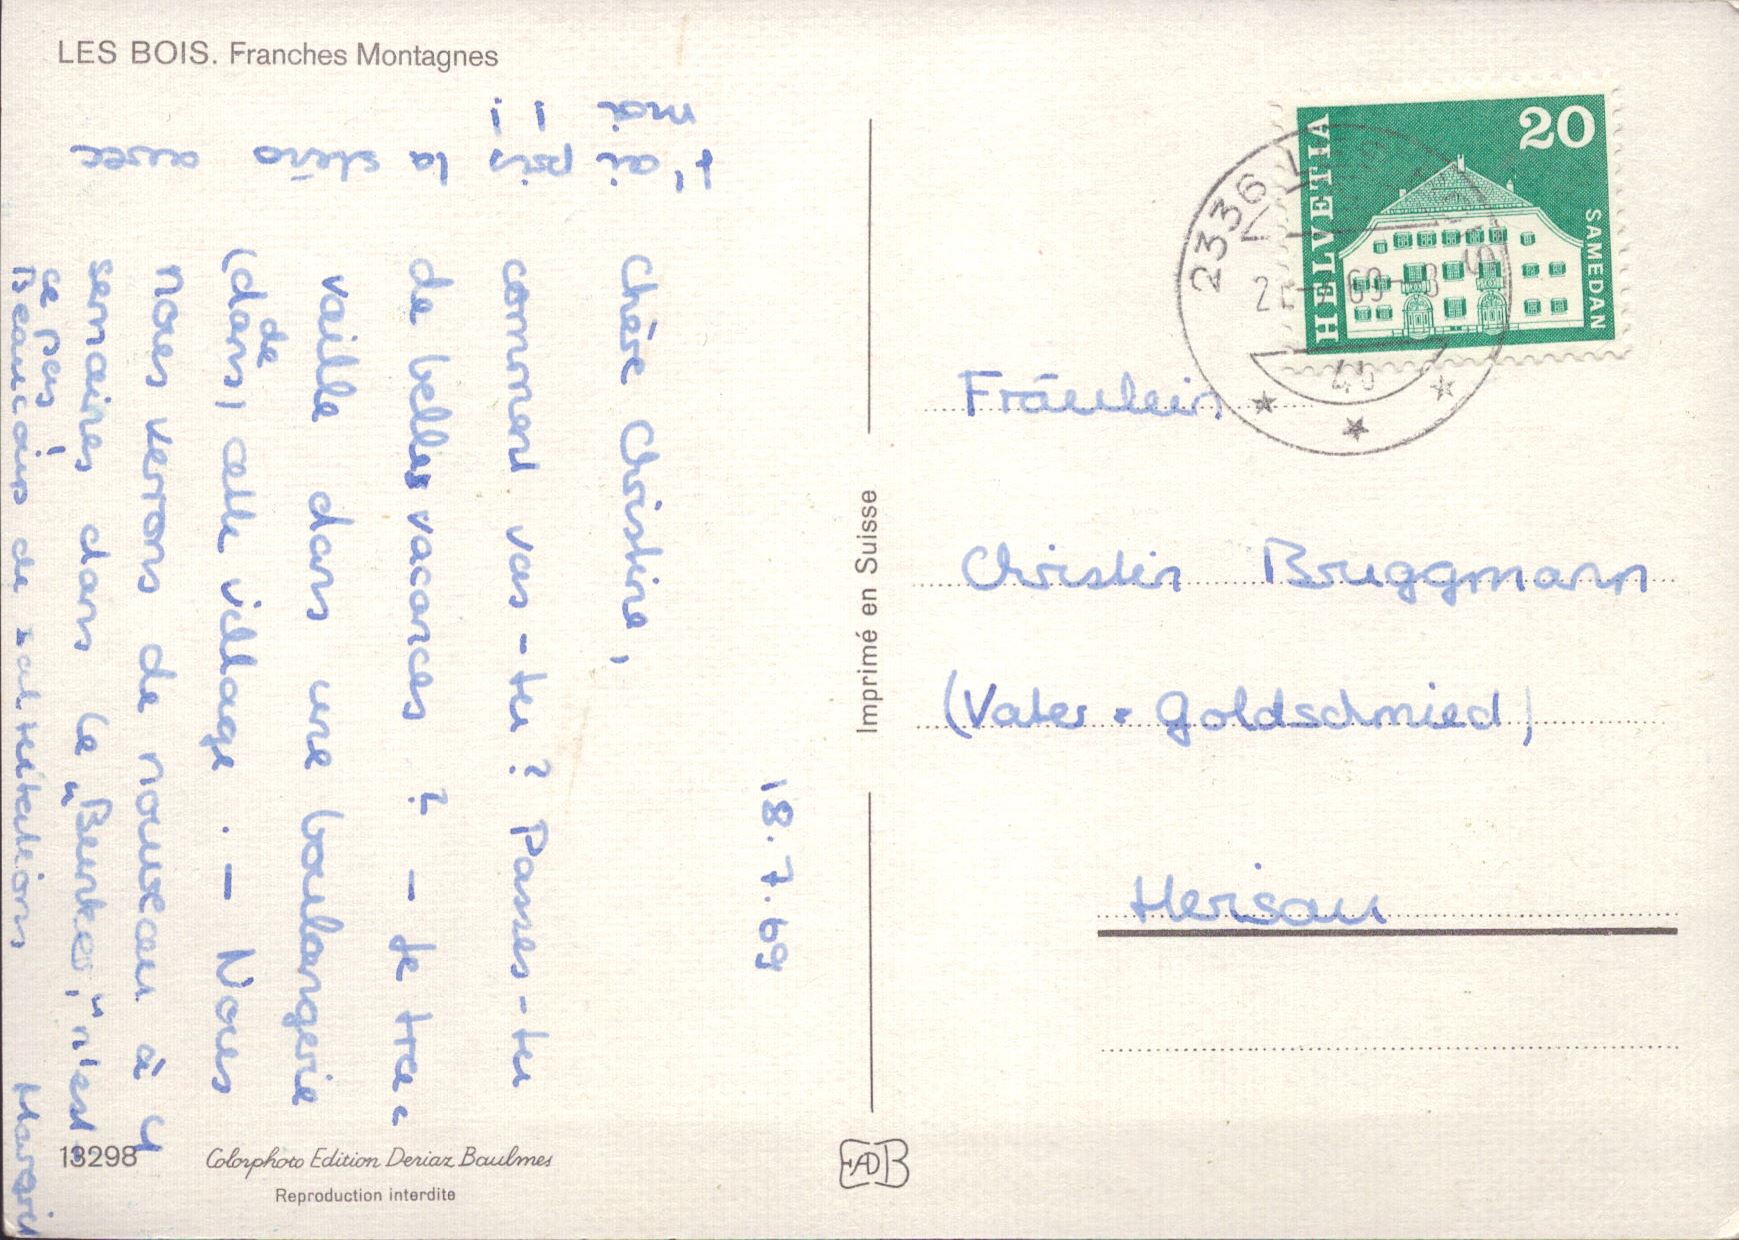 LES BOIS. Franches Montagnes
18.7.69
Chère Christine,
comment vas-tu? Passes-tu
de belles vacances? - Je tra-
vaille dans une boulangerie
(dans) cette village. - Nous
de
nous verrons de nouveau à 4
semaines dans le "Bunker," n'est
ce pas!
Beaucoup de salutations
t'ai pris la sténo avec
moi !!
13298
Colorphoto Edition Deriaz Baulmes
Reproduction interdite
Imprimé en Suisse
EDB
HELVETIA
20
SAMEDAN
2336 LES BOIS
Fräulein
Christin Bruggmann
(Vater = Goldschmied)
Herisau